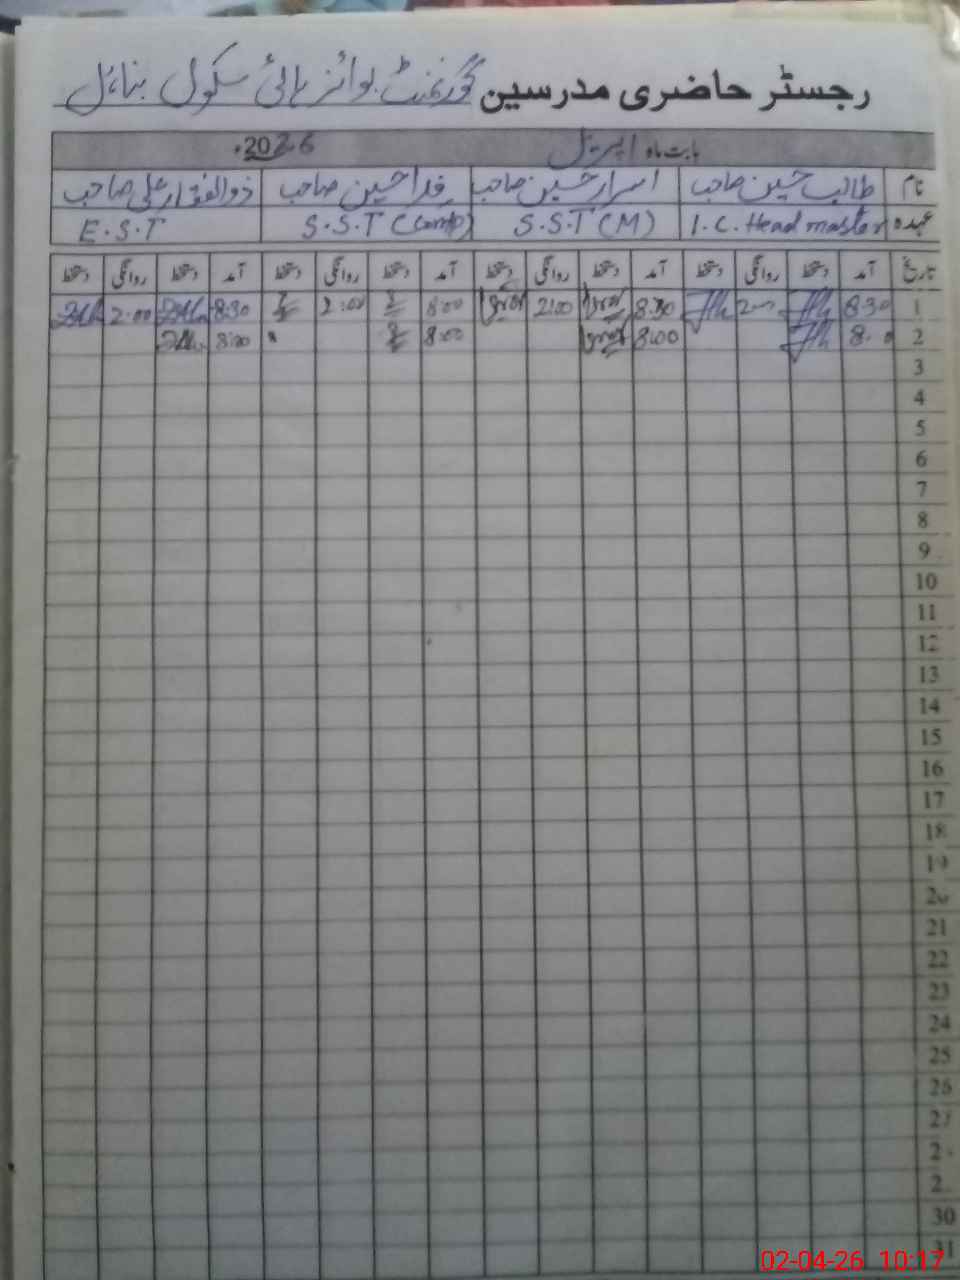 رجسٹر حاضری مدرسین گورنمنٹ بوائز ہائی سکول بنائل
بابت ماہ اپریل 2026ء
نام طالب حسین صاحب اسرار حسین صاحب فدا حسین صاحب ذوالفقار علی صاحب
عہدہ I.C. Head master S.S.T (M) S.S.T (Comp) E.S.T
تاریخ آمد دستخط روانگی دستخط آمد دستخط روانگی دستخط آمد دستخط روانگی دستخط آمد دستخط روانگی دستخط
1 8:30 2:00 8:30 2:00 8:00 2:00 8:30 2:00
2 8:00 8:00 8:00 8:00
3
4
5
6
7
8
9
10
11
12
13
14
15
16
17
18
19
20
21
22
23
24
25
26
27
30
31
02-04-26 10:17